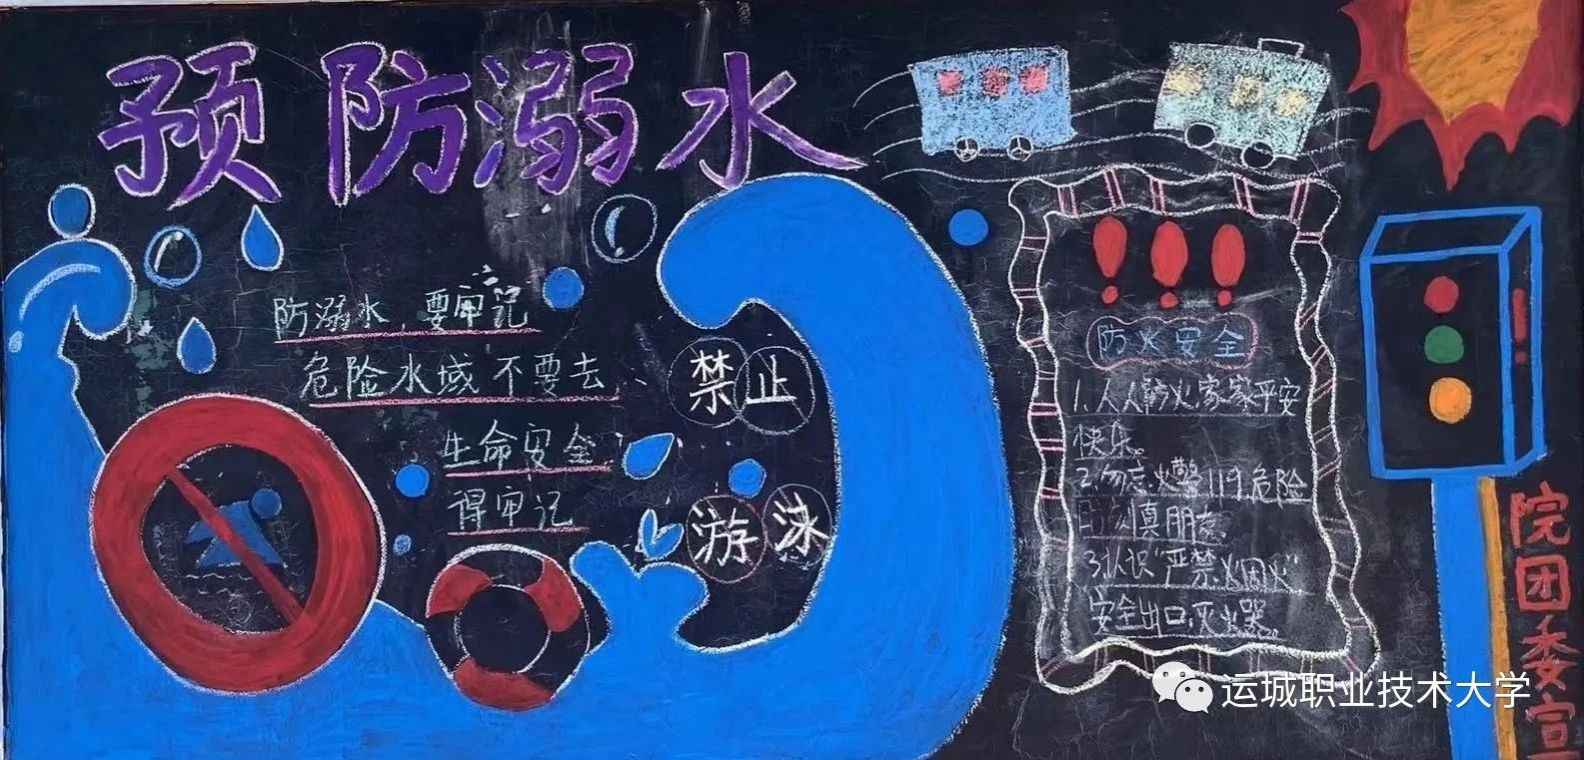 预防溺水
防溺水,要牢记
危险水域不要去
生命安全
得牢记
禁止
游泳
防火安全
1.人人防火家家平安
快乐。
2.勿忘火警119.危险
时刻真朋友。
3.认识"严禁烟火"
安全出口.灭火器。
院团委宣
运城职业技术大学